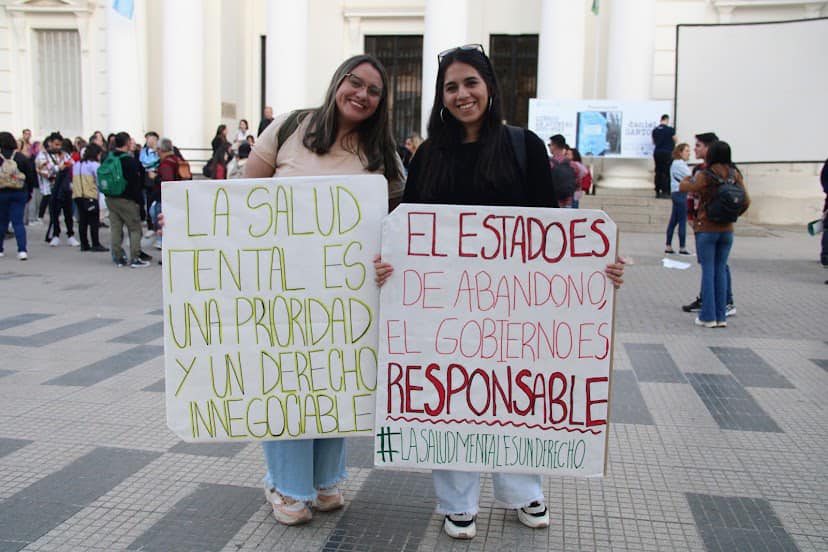 LA SALUD
MENTAL ES
UNA PRIORIDAD
Y UN DERECHO
INNEGOCIABLE
EL ESTADO ES
DE ABANDONO,
EL GOBIERNO ES
RESPONSABLE
#LASALUDMENTALESUNDERECHO